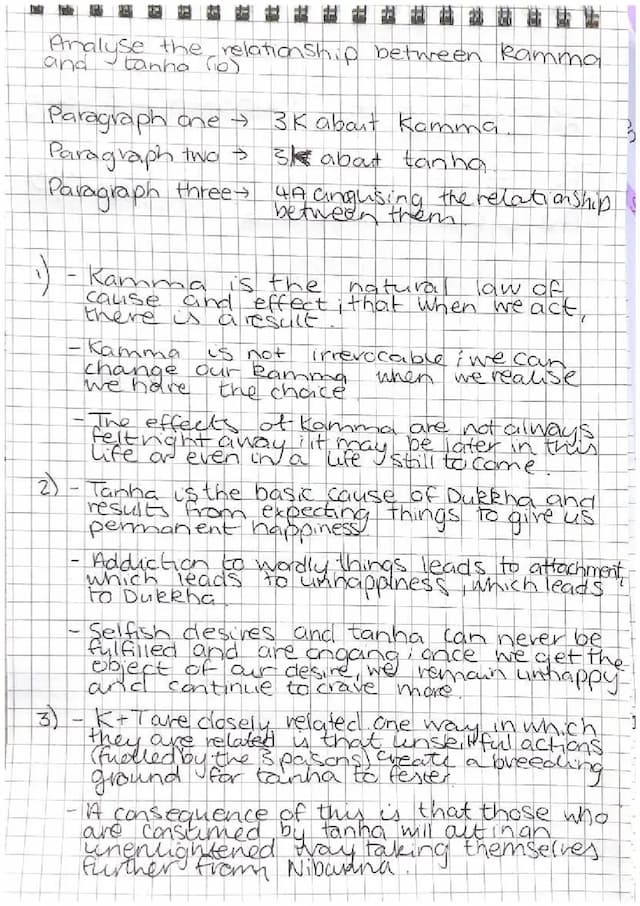 Analyse the relationship between kamma
and tanha (10)
Paragraph one → 3K about Kamma.
Paragraph two → 3K about tanha
Paragraph three → 4A analysing the relationship
between them.
1) - Kamma is the natural law of
cause and effect; that when we act,
there is a result.
- Kamma is not irrevocable; we can
change our kamma when we realise
we have the choice
- The effects of kamma are not always
felt right away; it may be later in this
life or even in a life still to come.
2) - Tanha is the basic cause of Dukkha and
results from expecting things to give us
permanent happiness
- Addiction to wordly things leads to attachment,
which leads to unhappiness, which leads
to Dukkha
- Selfish desires and tanha can never be
fulfilled and are ongoing; once we get the
object of our desire, we remain unhappy
and continue to crave more.
3) - K+T are closely related one way in which
they are related is that unskilful actions
(fuelled by the 3 poisons) create a breeding
ground for tanha to fester
- A consequence of this is that those who
are consumed by tanha will act in an
unenlightened way taking themselves
further from Nibanna.